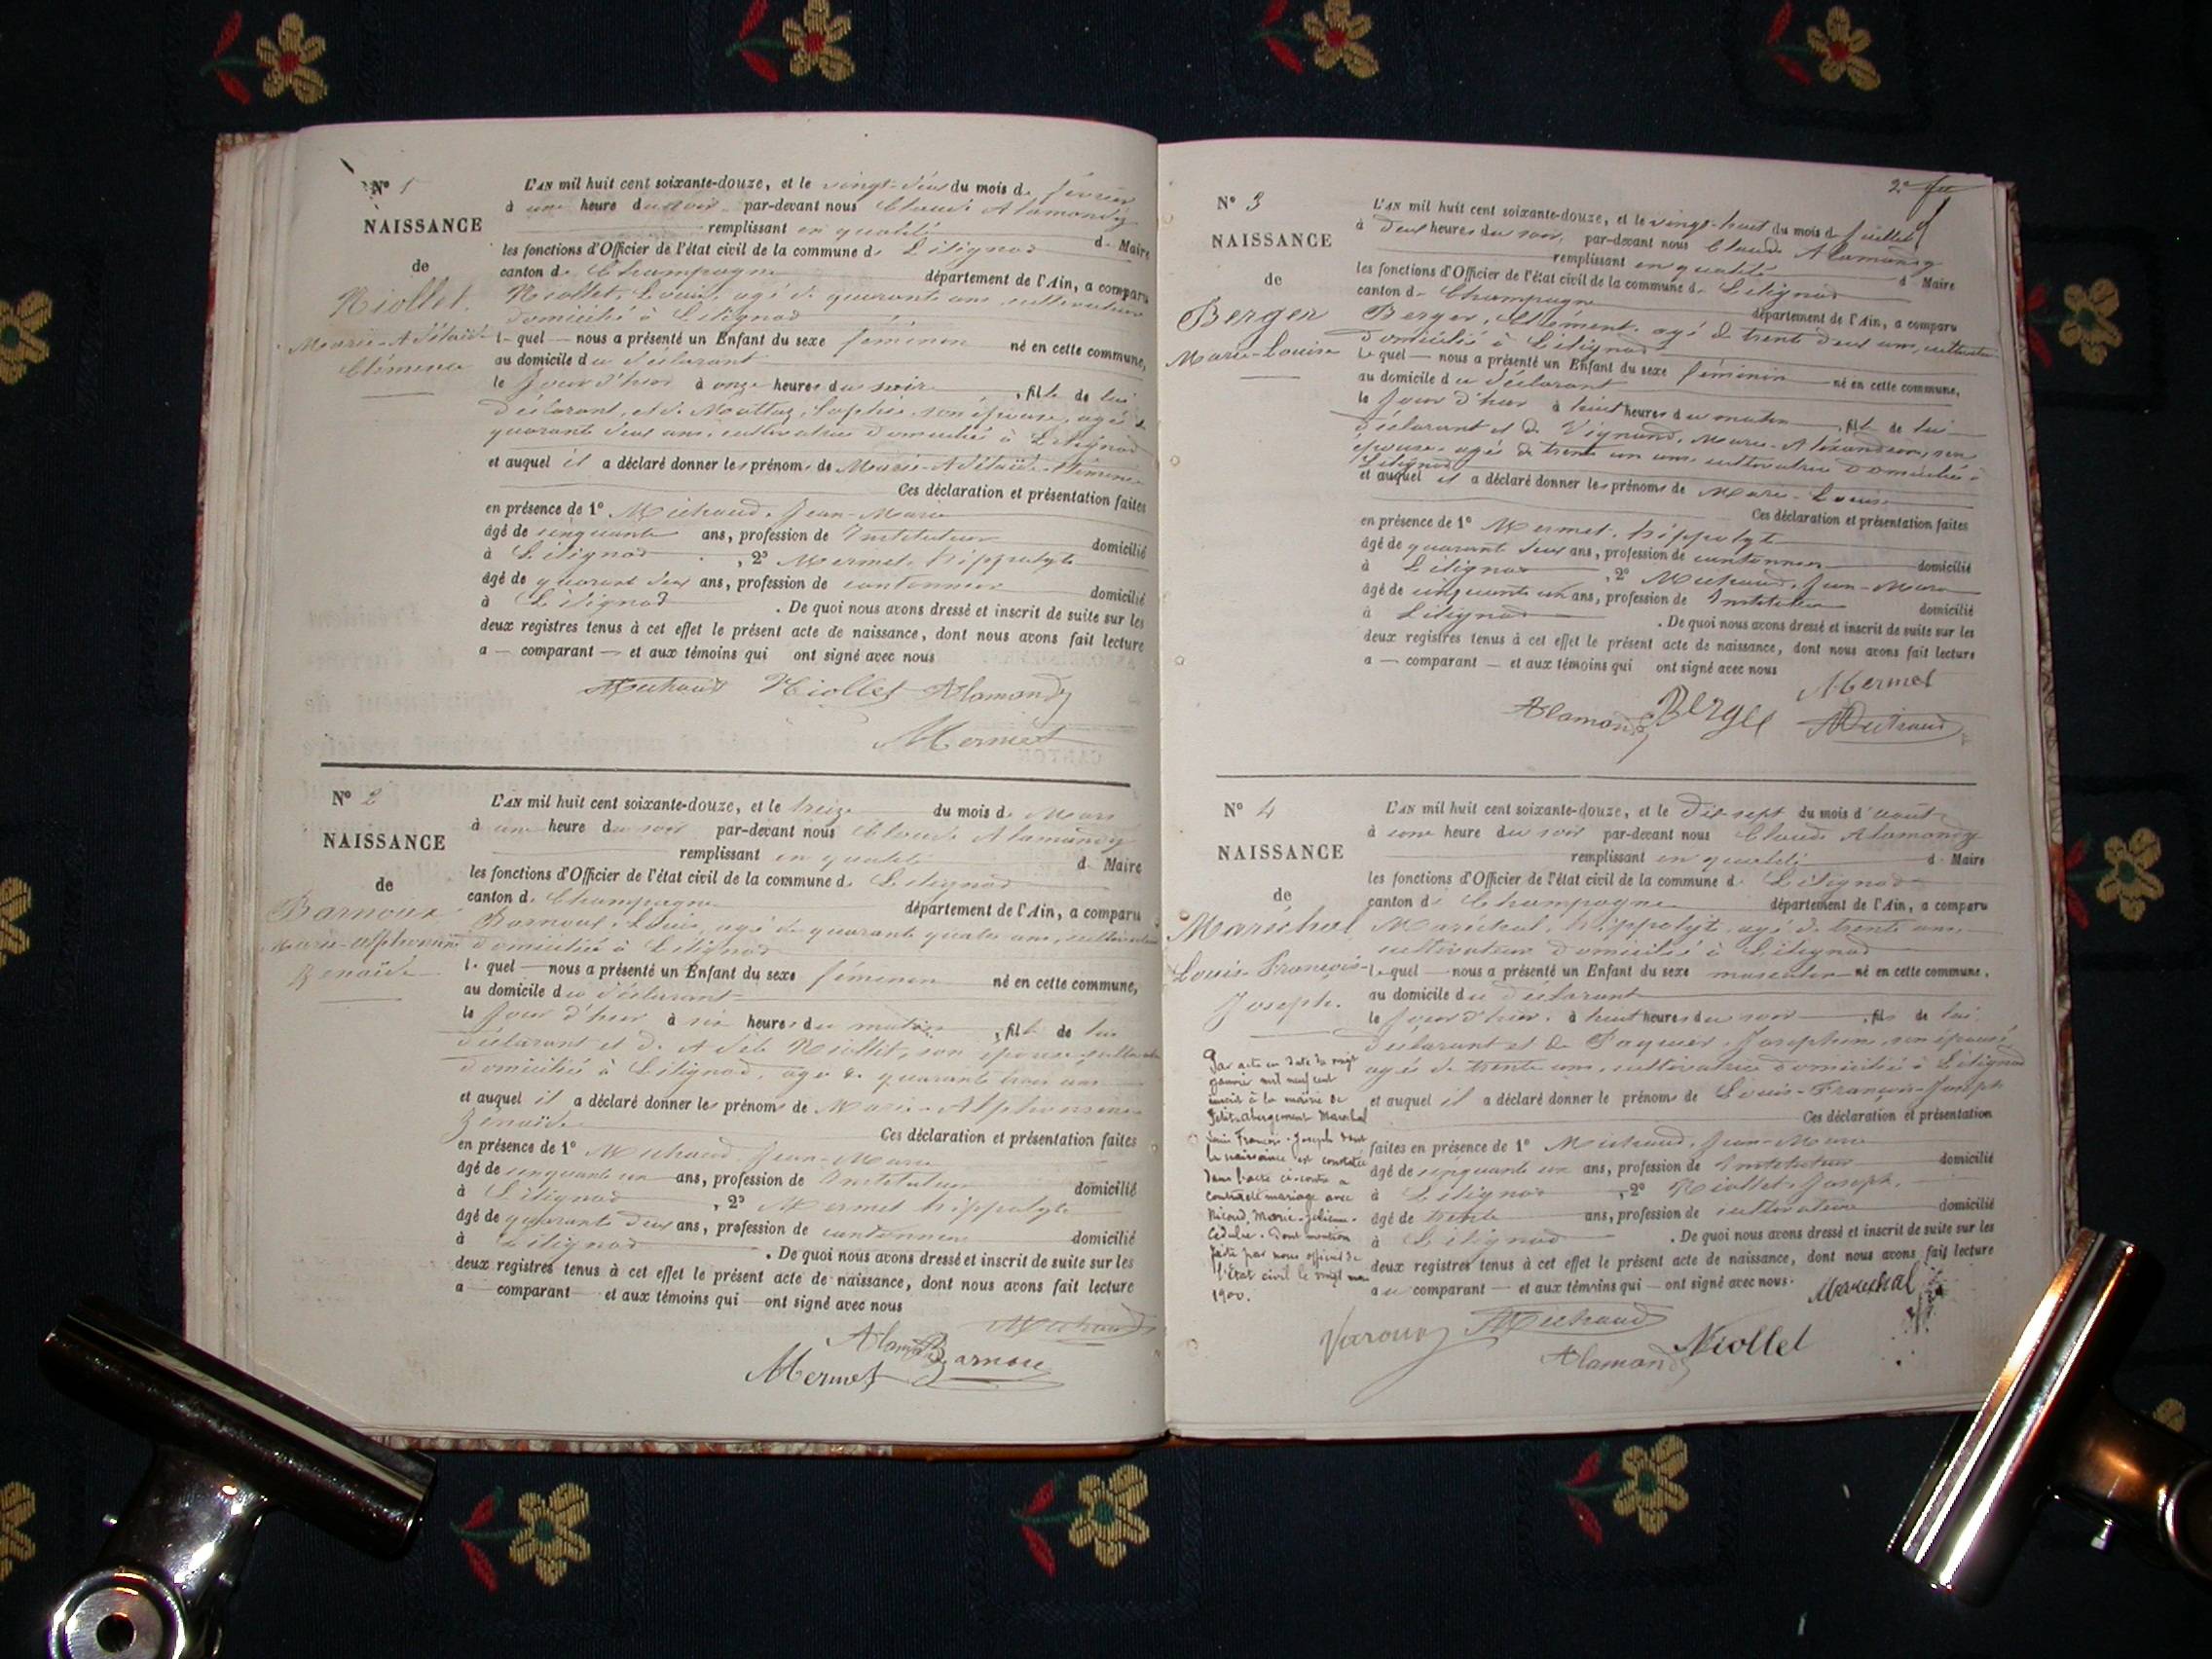 N° 1
NAISSANCE
de
Niollet
Marie-Adélaïde
Clémence
L'AN mil huit cent soixante-douze, et le vingt-deux du mois de février
à une heure du soir par-devant nous Claude Alamondy
remplissant en qualité de Maire
les fonctions d'Officier de l'état civil de la commune de Lilignod
canton de Champagne département de l'Ain, a comparu
Niollet, Louis, agé de quarante ans, cultivateur
domicilié à Lilignod
lequel nous a présenté un Enfant du sexe féminin né en cette commune,
au domicile du déclarant
le jour d'hier à onze heures du soir, fille de lui
déclarant, et de Sophie, son épouse, agé de
quarante deux ans, cultivatrice domiciliée à Lilignod
et auquel il a déclaré donner les prénoms de Marie-Adélaïde-Clémence
Ces déclaration et présentation faites
en présence de 1° Michaud, Jean-Marie
âgé de cinquante ans, profession de Instituteur domicilié
à Lilignod, 2° Mermet, hippolyte
âgé de quarant deux ans, profession de cantonnier domicilié
à Lilignod. De quoi nous avons dressé et inscrit de suite sur les
deux registres tenus à cet effet le présent acte de naissance, dont nous avons fait lecture
a — comparant — et aux témoins qui ont signé avec nous
Michaud Niollet Alamondy
Mermet
N° 2
NAISSANCE
de
Barnoux
Marie-Alphonsine
Zénaïde
L'AN mil huit cent soixante-douze, et le treize du mois de Mars
à une heure du soir par-devant nous Claude Alamondy
remplissant en qualité de Maire
les fonctions d'Officier de l'état civil de la commune de Lilignod
canton de Champagne département de l'Ain, a comparu
Barnoux, Louis, agé de quarante quatre ans, cultivateur
domicilié à Lilignod
lequel — nous a présenté un Enfant du sexe féminin né en cette commune,
au domicile du déclarant
le jour d'hier à six heures du matin, fille de lui
déclarant et de Adèle Niollet, son épouse
domiciliée à Lilignod, agé de quarante trois ans
et auquel il a déclaré donner les prénoms de Marie-Alphonsine
Zénaïde
Ces déclaration et présentation faites
en présence de 1° Michaud Jean-Marie
âgé de cinquante un ans, profession de Instituteur domicilié
à Lilignod, 2° Mermet hippolyte
âgé de quarante deux ans, profession de cantonnier domicilié
à Lilignod. De quoi nous avons dressé et inscrit de suite sur les
deux registres tenus à cet effet le présent acte de naissance, dont nous avons fait lecture
a — comparant et aux témoins qui — ont signé avec nous
Michaud
Alamondy Barnou
Mermet
N° 3
NAISSANCE
de
Berger
Marie-Louise
L'AN mil huit cent soixante-douze, et le vingt-huit du mois de Juillet
à deux heures du soir, par-devant nous Claude Alamondy
remplissant en qualité de Maire
les fonctions d'Officier de l'état civil de la commune de Lilignod
canton de Champagne département de l'Ain, a comparu
Berger, Clément, agé de trente deux ans, cultivateur
domicilié à Lilignod
lequel — nous a présenté un Enfant du sexe féminin né en cette commune,
au domicile du déclarant
le jour d'hier à huit heures du matin, fille de lui
déclarant et de Vignand, Marie-Alexandrine, son
épouse, agé de trente un ans, cultivatrice domiciliée à
Lilignod
et auquel il a déclaré donner les prénoms de Marie-Louise
Ces déclaration et présentation faites
en présence de 1° Mermet, hippolyte
âgé de quarant deux ans, profession de cantonnier domicilié
à Lilignod, 2° Michaud, Jean-Marie
âgé de cinquante un ans, profession de Instituteur domicilié
à Lilignod. De quoi nous avons dressé et inscrit de suite sur les
deux registres tenus à cet effet le présent acte de naissance, dont nous avons fait lecture
a — comparant — et aux témoins qui ont signé avec nous
Mermet
Alamondy Berger Michaud
N° 4
NAISSANCE
de
Maréchal
Louis-François-
Joseph.
L'AN mil huit cent soixante-douze, et le dix-sept du mois d'août
à une heure du soir par-devant nous Claude Alamondy
remplissant en qualité de Maire
les fonctions d'Officier de l'état civil de la commune de Lilignod
canton de Champagne département de l'Ain, a comparu
Maréchal, hippolyte, agé de trente ans,
cultivateur domicilié à Lilignod
lequel — nous a présenté un Enfant du sexe masculin né en cette commune,
au domicile du déclarant
le jour d'hier, à huit heures du soir, fils de lui
déclarant et de Paquier, Joséphine, son épouse,
agé de trente ans, cultivatrice domiciliée à Lilignod
et auquel il a déclaré donner les prénoms de Louis-François-Joseph
Ces déclaration et présentation
faites en présence de 1° Michaud, Jean-Marie
âgé de cinquante un ans, profession de Instituteur domicilié
à Lilignod, 2° Niollet, Joseph,
âgé de trente ans, profession de cultivateur domicilié
à Lilignod. De quoi nous avons dressé et inscrit de suite sur les
deux registres tenus à cet effet le présent acte de naissance, dont nous avons fait lecture
au comparant — et aux témoins qui — ont signé avec nous. Maréchal
Michaud
Alamondy Niollet
Par acte en date du vingt
janvier mil neuf cent
inscrit à la mairie de
Petit-abergement Maréchal
Louis François-Joseph dont
la naissance est constatée
dans l'acte ci-contre a
contracté mariage avec
Nicoud, Marie-Julienne-
Cédulie. Dont mention
faite par nous officier de
l'Etat civil le vingt mai
1900.